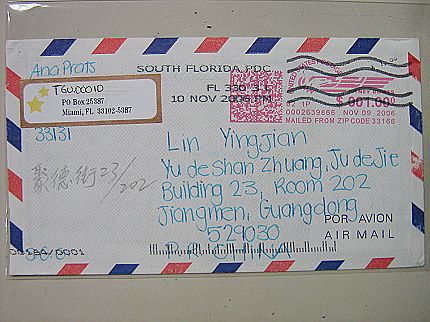 Ana Prats
TGU00010
PO Box 25387
Miami, FL 33102-5387
33131
SOUTH FLORIDA PDC
10 NOV 2006 PM
$ 001.00
0002639666 NOV 09 2006
MAILED FROM ZIP CODE 33166
聚德街23/202
Lin Yingjian
Yu de Shan Zhuang, Ju de Jie
Building 23, Room 202
Jiangmen, Guangdong
529030
P.R. CHINA
PAR AVION
AIR MAIL